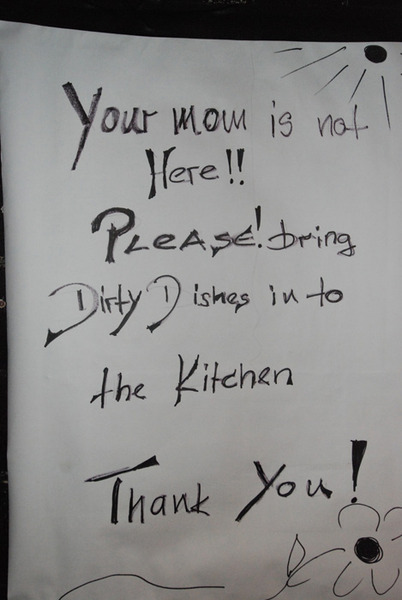 Your mom is not
Here!!
PLEASE! bring
Dirty Dishes in to
the Kitchen
Thank You!